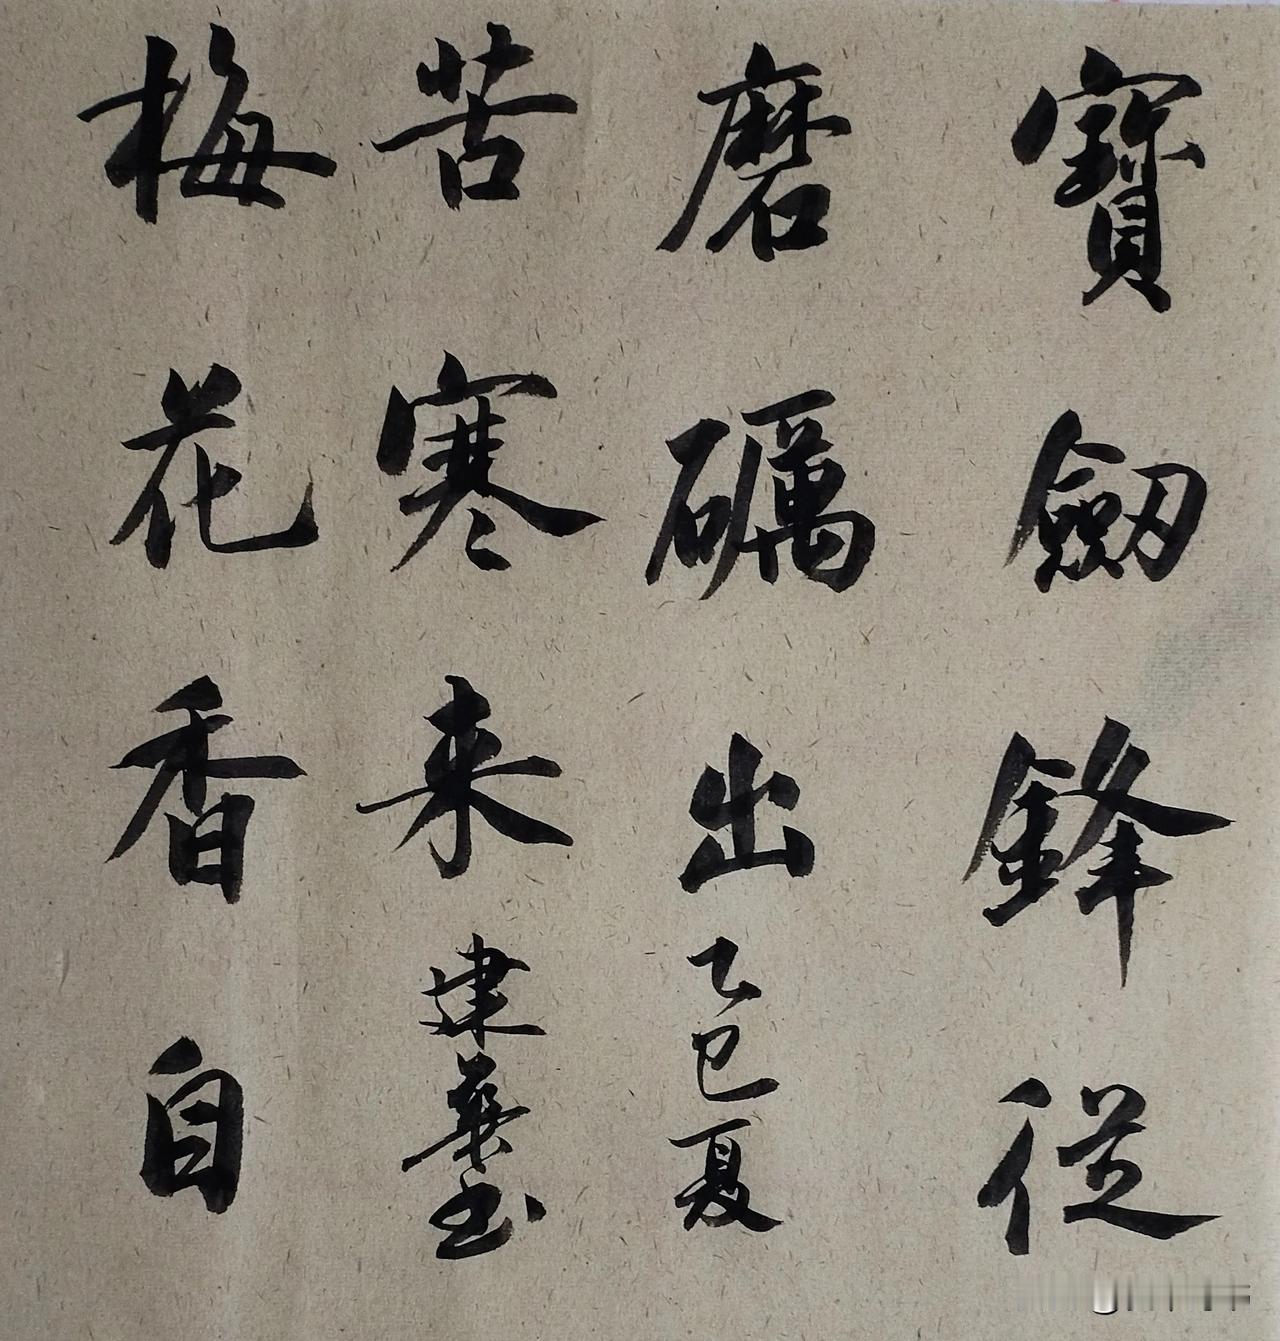 寶劒鋒從
磨礪出
梅花香自
苦寒来
乙巳夏
建華书